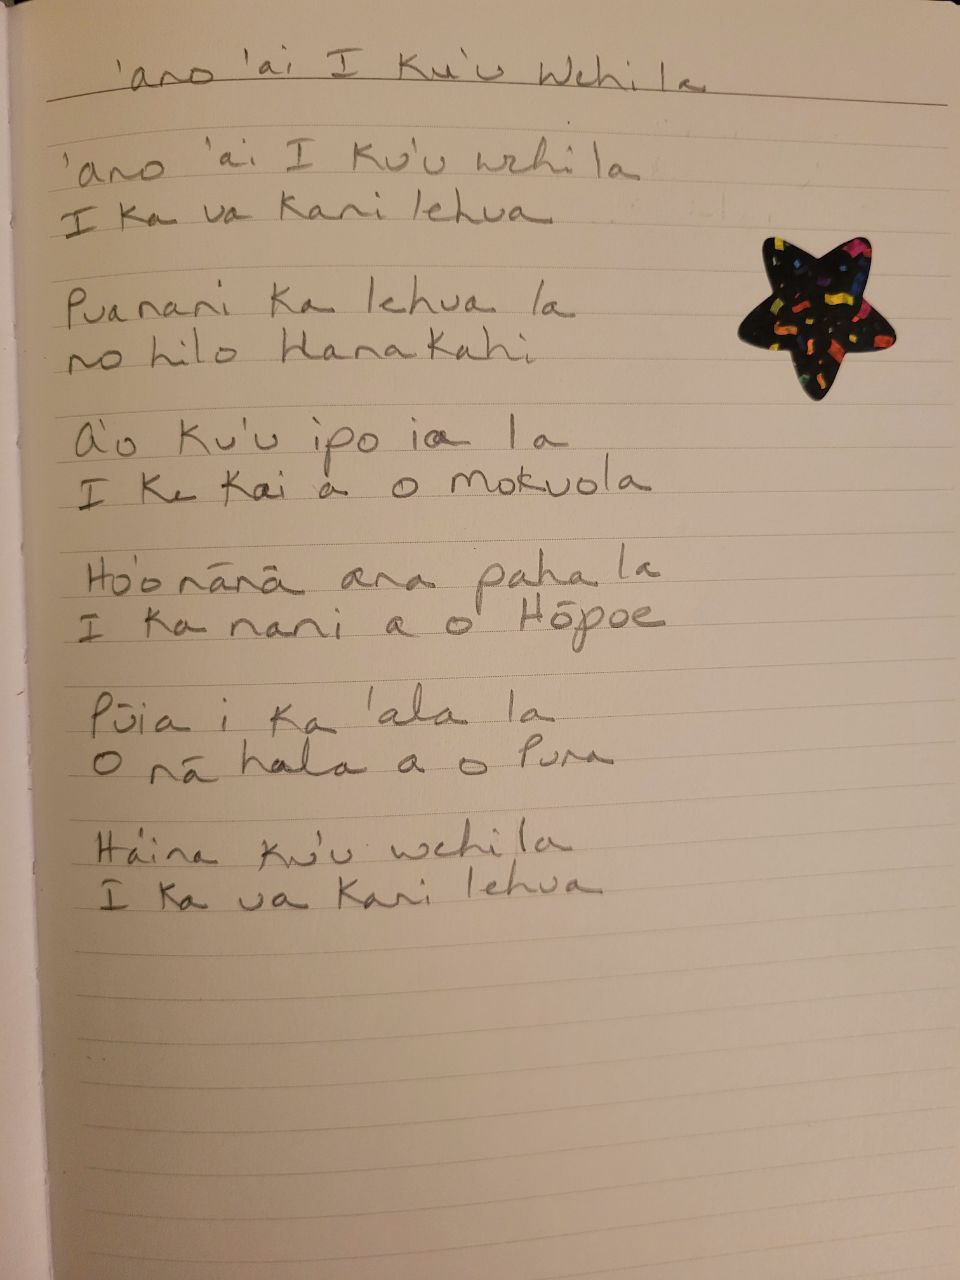 'ano 'ai I Ku'u Wehi la
'ano 'ai I Ku'u wehi la
I Ka ua Kani lehua
Pua nani Ka lehua la
no hilo Hana Kahi
A'o Ku'u ipo ia la
I Ke Kai a o Mokuola
Ho'o nānā ana paha la
I Ka nani a o Hōpoe
Pūia i Ka 'ala la
O nā hala a o Puna
Ha'ina Ku'u wehi la
I Ka ua Kani lehua